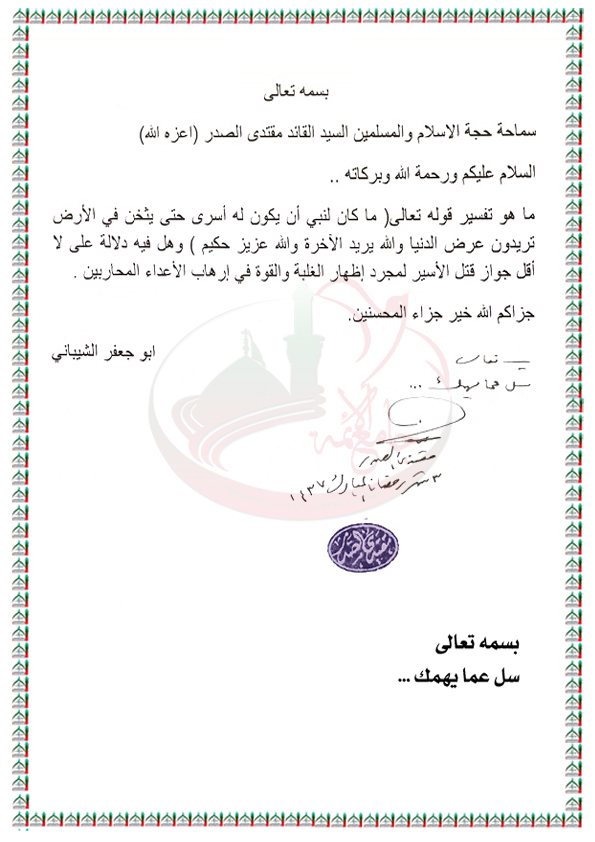 بسمه تعالى
سماحة حجة الاسلام والمسلمين السيد القائد مقتدى الصدر (اعزه الله)
السلام عليكم ورحمة الله وبركاته ..
ما هو تفسير قوله تعالى( ما كان لنبي أن يكون له أسرى حتى يثخن في الأرض
تريدون عرض الدنيا والله يريد الآخرة والله عزيز حكيم ) وهل فيه دلالة على لا
أقل جواز قتل الأسير لمجرد إظهار الغلبة والقوة في إرهاب الأعداء المحاربين .
جزاكم الله خير جزاء المحسنين.
ابو جعفر الشيباني
بسمه تعالى
سل عما يهمك ...
مقتدى الصدر
٣ شهر رمضان المبارك ١٤٣٧
مقتدى الصدر
بسمه تعالى
سل عما يهمك ...